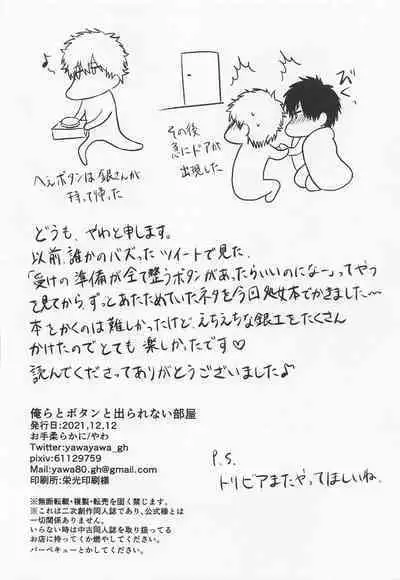 ♪
へぇボタンは銀さんが
持って帰った
その後
急にドアが
出現した
びくっ
どうも、やわと申します。
以前、誰かのバズったツイートで見た、
「受けの準備が全て整うボタンがあったらいいのになー」ってやつ
を見てからずっとあたためていたネタを今回処女本でかきました〜
本をかくのは難しかったけど、えちえちな銀土をたくさん
かけたのでとても楽しかったです♡
読んでくださってありがとうございました♪
俺らとボタンと出られない部屋
発行日:2021,12,12
お手柔らかに/やわ
Twitter:yawayawa_gh
pixiv:61129759
Mail:yawa80.gh@gmail.com
印刷所:栄光印刷様
※無断転載・複製・転売を固く禁じます。
※これは二次創作同人誌であり、公式様とは
一切関係ありません。
いらない時は中古同人誌を取り扱ってる
お店に持ってくか燃やしてください。
バーベキューとかしてください。
P.S.
トリビアまたやってほしいね。